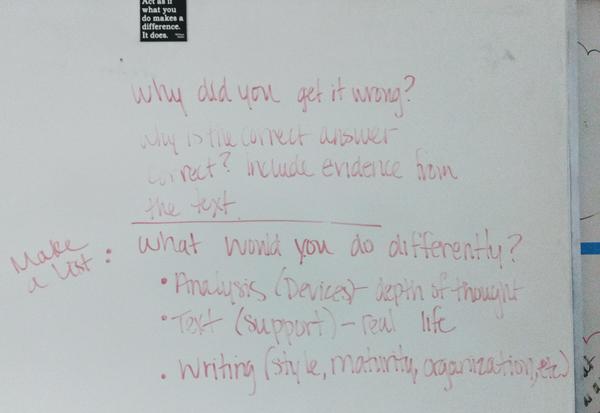 Act as if
what you
do makes a
difference.
It does.
Why did you get it wrong?
Why is the correct answer
correct? Include evidence from
the text.
Make
a list:
What would you do differently?
• Analysis (Devices) - depth of thought
• Text (support) - real life
• Writing (style, maturity, organization, etc)